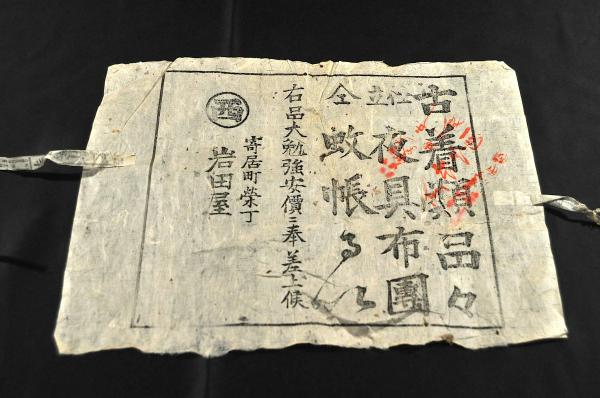 古着類品々
仕立夜具布團
仝蚊帳るい
右品大勉強安價ニ奉差上候
寄居町榮丁
西
岩田屋